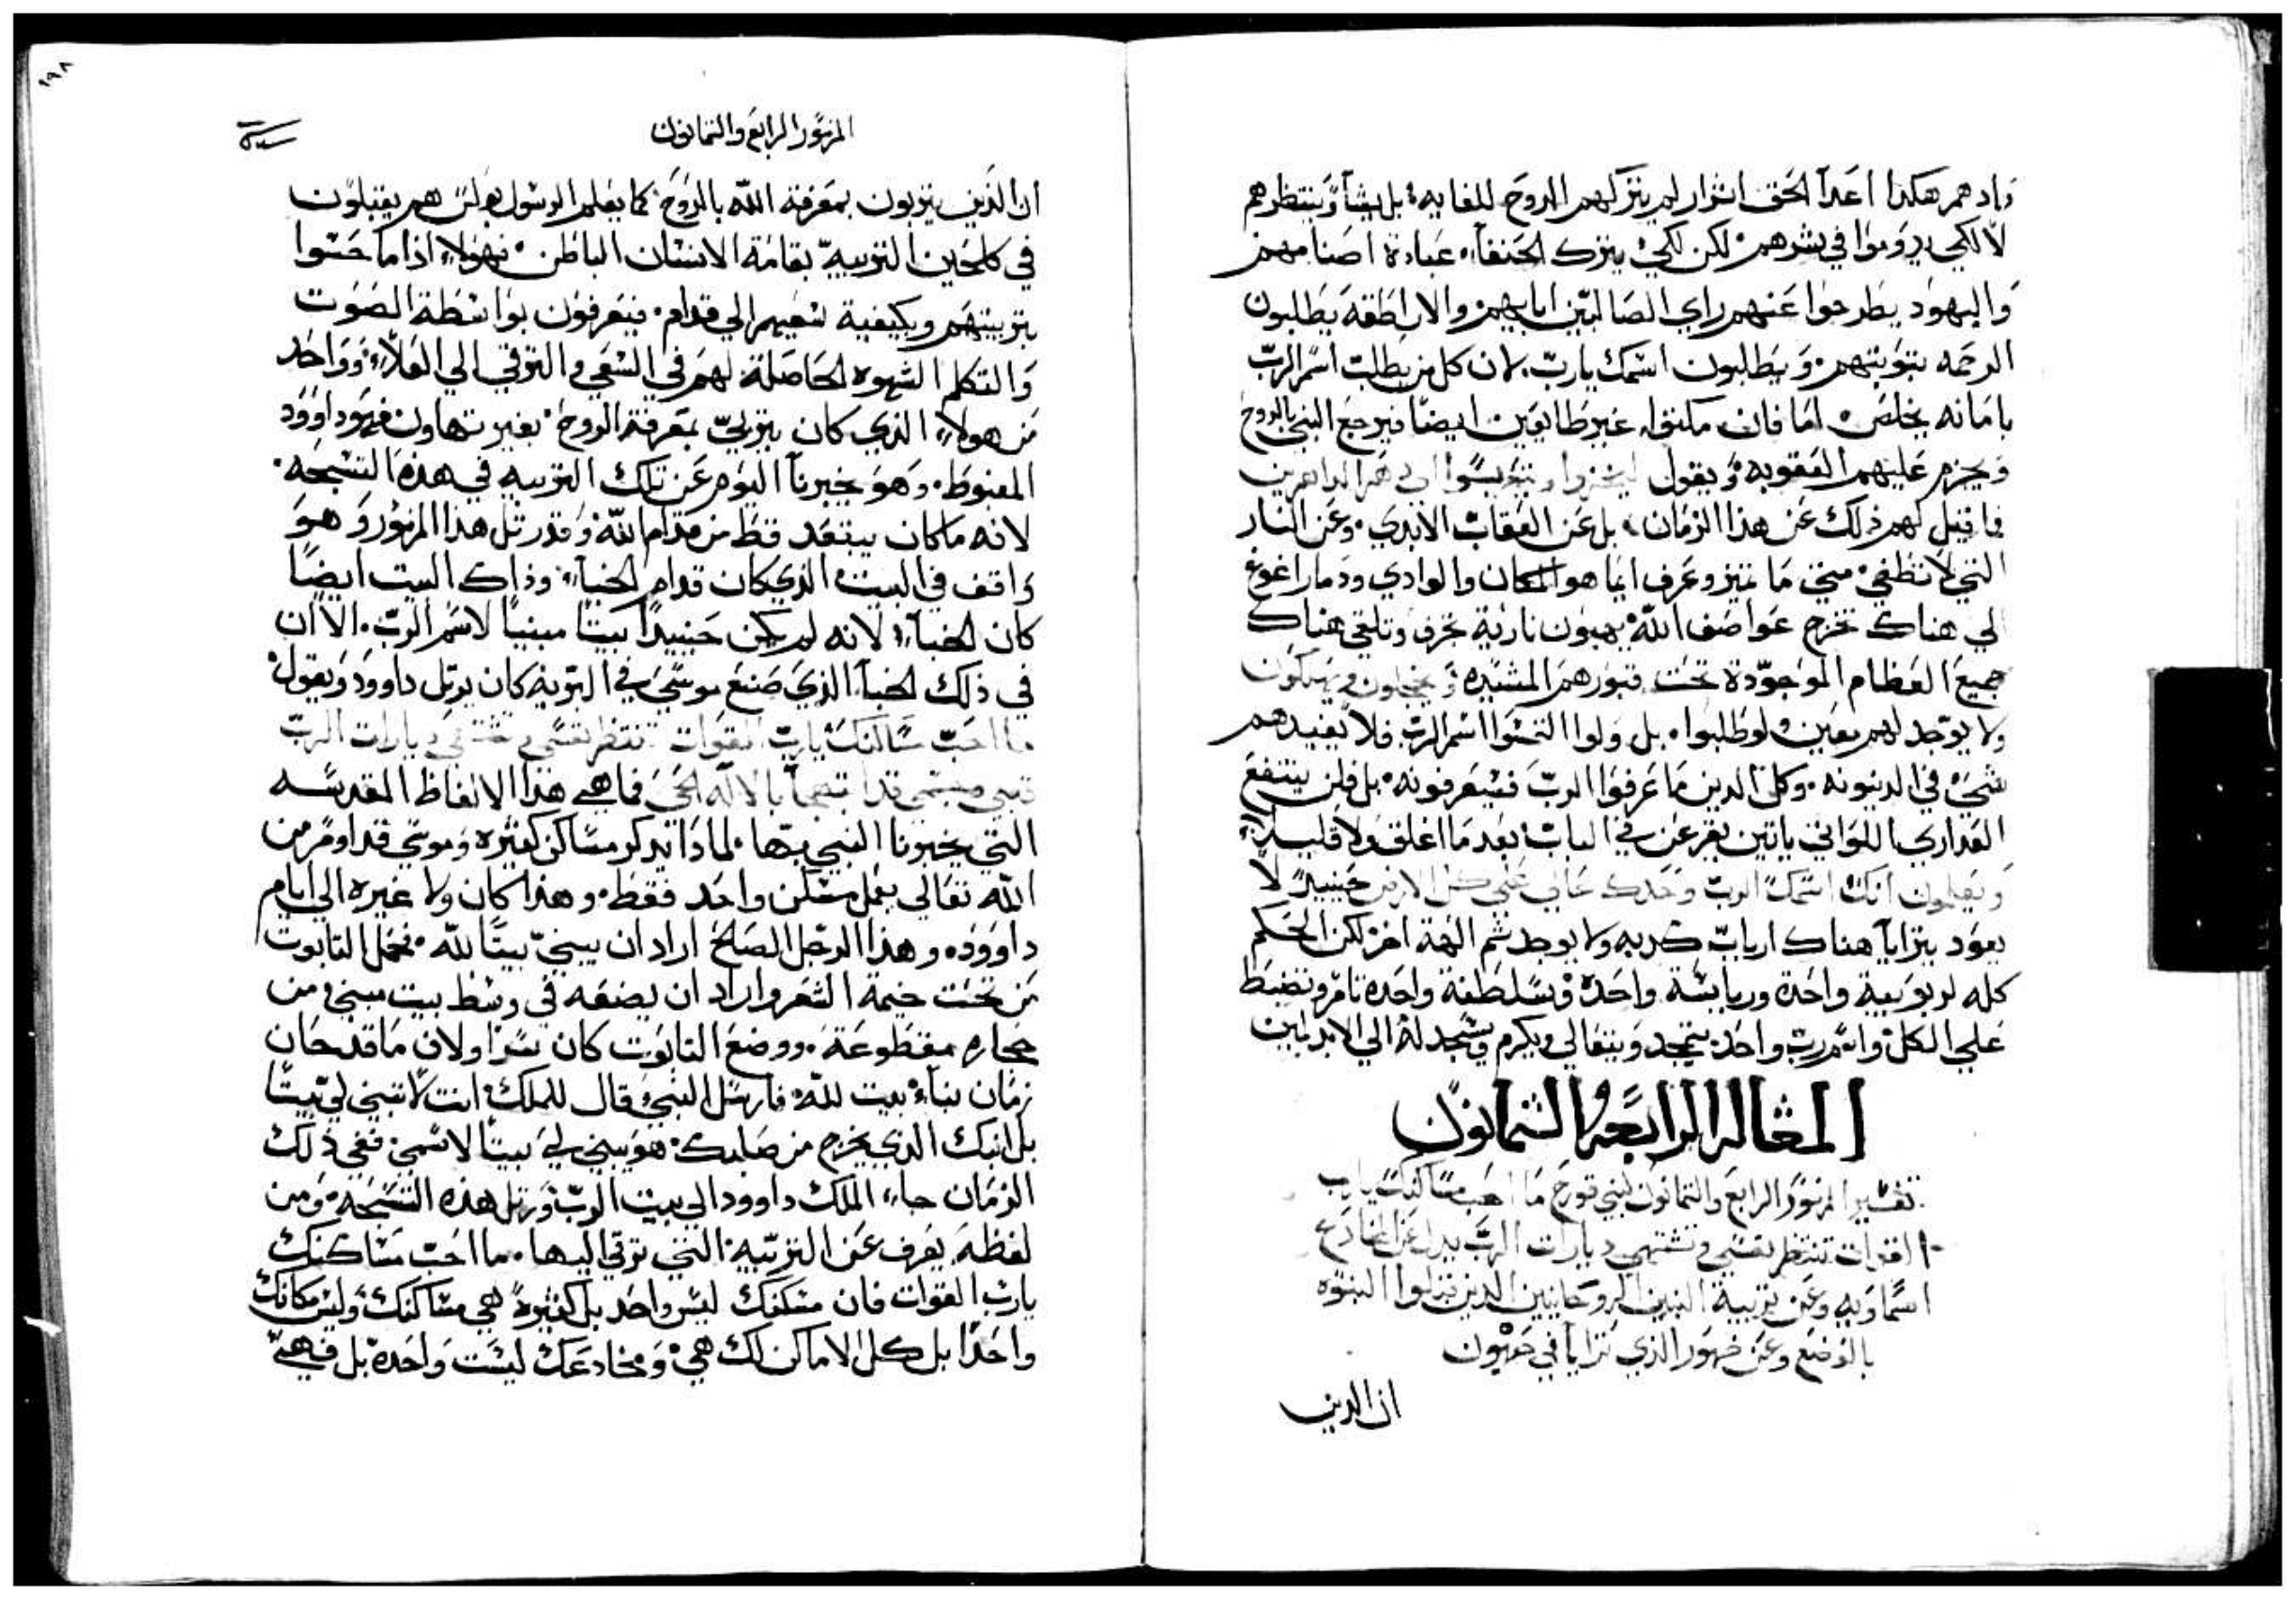 واد هم هكذا اعدآ الحق اشرار لم يتركهم الروح للغايه بل يشآ وينتظرهم
لا لكي يدوموا في شرهم لكن لكي يترك الحنفآ عبادة اصنامهم
واليهود يطرحوا عنهم راي الصالبين ابايهم والاراطقه يطلبون
الرحمه بتوبتهم ويطلبون اسمك يارب لان كل من يطلب اسم الرب
بامانه يخلص اما فان مكثوا غير طايعين ايضا فيرجع النبي بالروح
ويجزم عليهم العقوبه ويقول ليخزوا الي دهر الداهرين
فما قيل لهم ذلك عن هذا الزمان بل عن العقاب الابدي وعن النار
التي لا تطفي متي ما تميز وعرف ايما هو المكان والوادي ودمار
الي هناك تخرج عواصف الله بهبون نارية تحرق وتلقي هناك
جميع العظام الموجودة تحت قبورهم المشيده ويخجلون ويهلكون
ولا يوجد لهم معين ولو طلبوا بل ولو التمسوا اسم الرب فلا يفيدهم
شي في الدينونه وكل الذين ما عرفوا الرب فسيعرفونه بل فلن ينتفع
العداري اللواتي ياتين يقرعن في الباب بعد ما اغلق ولا قليلا
ويعلمون انك اسمك الرب وحدك عالي علي كل الارض حينيذ لا
يعود يترايآ هناك ارباب كدبه ولا يوجد ثم الهة اخر لكن الحكم
كله لربوبية واحدة ورياسة واحدة وسلطنة واحده تامر وتضبط
علي الكل واسم رب واحد يتمجد ويتعالي ويكرم ويسجد له الي الابد امين
المقاله الرابعه والثمانون
تفسير المزمور الرابع والثمانون لبني قورح ما احب مساكنك يارب
القوات تنتظر نفسي وتشتهي ديارات الرب يدل عن المخادع
السماويه وعن تربية البنين الروحانيين الدين قبلوا البنوه
بالوضع وعن ظهور الذي ترايا في صهيون
ان الدين
١٩٨
المزمور الرابع والثمانون
ان الذين يتربون بمعرفة الله بالروح كما يعلم الرسول بولس هم يقبلون
في كل حين التربيه بقامة الانسان الباطن فهولاء اذا ما حسوا
بتربيتهم وبكيفية سعيهم الي قدام فيعرفون بواسطة الصوت
والتكلم الشهوه الحاصلة لهم في السعي والترقي الي العلاء وواحد
من هولاء الذي كان يتربي بمعرفة الروح بغير تهاون فهو داوود
المغبوط وهو يخبرنا اليوم عن تلك التربيه في هذه التسبحه
لانه ما كان يبتعد قط من قدام الله وقد رتل هذا المزمور وهو
واقف في البيت الذي كان قدام الخبآ وذاك البيت ايضا
كان الخبآ لانه لم يكن حينيذا بيتا مبنيا لاسم الرب الا ان
في ذلك الخبآ الذي صنع موسي في البريه كان يرتل داوود ويقول
ما احب مساكنك يارب القوات تنتظر نفسي وتشتهي ديارات الرب
قلبي وجسمي قد ابتهجا بالاله الحي فما هي هذا الالفاظ المقدسه
التي يخبرنا النبي بها لماذا يذكر مساكن كثيره وموسي قد اومر من
الله تعالي بعمل مسكن واحد فقط وهذا كان ولا غيره الي ايام
داوود وهذا الرجل الصالح اراد ان يبني بيتا لله فحمل التابوت
من تحت خيمة الشعر واراد ان يضعه في وسط بيت مبني من
حجاره مقطوعة ووضع التابوت كان سرا ولان ما قد حان
زمان بنآء بيت لله فارسل النبي وقال للملك انت لا تبني لي بيتا
بل ابنك الذي يخرج من صلبك هو يبني لي بيتا لاسمي ففي ذلك
الزمان جاء الملك داوود الي بيت الرب ورتل هذه التسبحه ومن
لفظة يعرف عن التربيه التي ترقي اليها ما احب مساكنك
يارب القوات فان مسكنك ليس واحد بل كثيرة هي مساكنك وليس مكانك
واحدا بل كل الاماكن لك هي ومخادعك ليست واحدة بل فهي